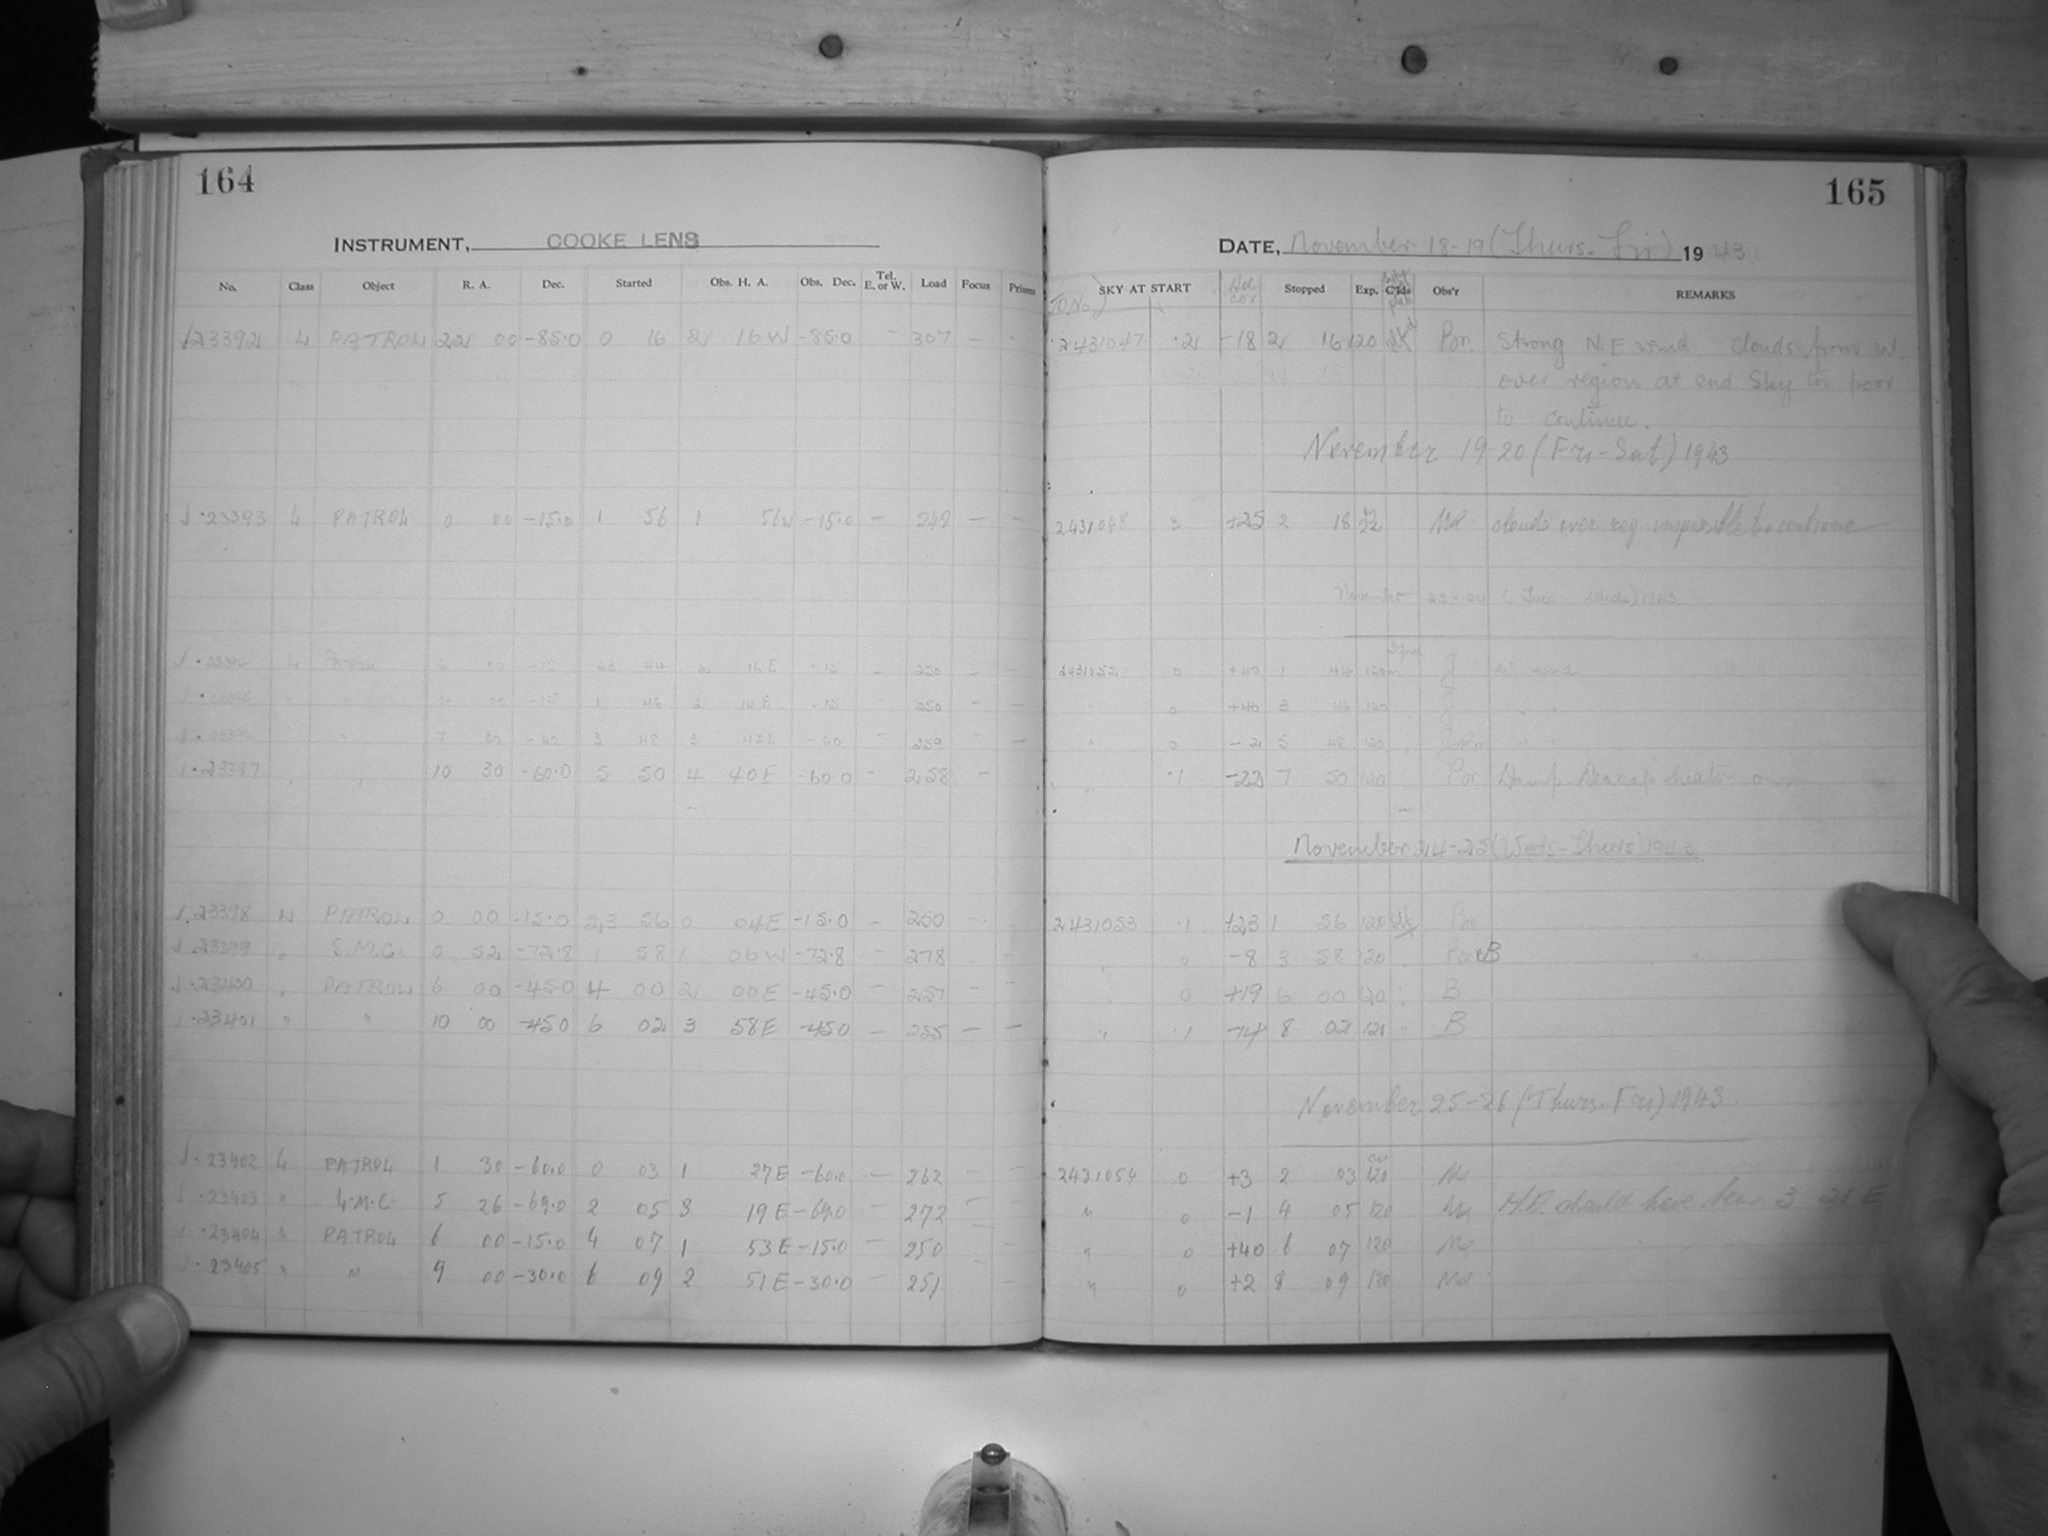 164
INSTRUMENT, COOKE LENS
No. Class Object R. A. Dec. Started Obs. H. A. Obs. Dec. Tel. E. or W. Load Focus Prisms
√23392 L PATROL 22 00 -85.0 0 16 2 16 W -85.0 - 307 - -
√.23393 L PATROL 0 00 -15.0 1 56 1 56W -15.0 - 248 - -
-15 44 16 E -15 - 250 - -
00 -15 1 46 2 14E -15 - 250 - -
7 30 -60 3 48 3 42E -60 - 259 - -
√.23397 " " 10 30 -60.0 5 50 4 40E -60.0 - 258 -
√.23398 L PATROL 0 00 -15.0 23 56 0 04E -15.0 - 250 - -
√.23399 " S.M.C. 0 52 -72.8 1 58 1 06 W -72.8 - 278 - -
√.23400 " PATROL 6 00 -45.0 4 00 2 00E -45.0 - 257 - -
√.23401 " " 10 00 -45.0 6 02 3 58E -45.0 - 255 - -
√.23402 L PATROL 1 30 -60.0 0 03 1 27E -60.0 - 262 - -
√.23403 " L.M.C. 5 26 -69.0 2 05 3 19E -69.0 - 272 - -
√.23404 " PATROL 6 00 -15.0 4 07 1 53E -15.0 - 250 - -
√.23405 " " 9 00 -30.0 6 09 2 51E -30.0 - 251 - -
165
DATE, November 18-19 (Thurs.-Fri) 1943
(J.D. No.) SKY AT START Stopped Exp. C'lds Obs'r REMARKS
2431047 .2 -18 2 16 120 Br. Strong N.E wind. Clouds from W.
over region at end. Sky too poor
to continue.
November 19-20 (Fri-Sat) 1943
2431048 3 +25 2 18 22 Md. clouds over reg. impossible to continue
November 23-24 (Tues-Weds) 1943
2431052 0 +40 1 44 120 J
" 0 +40 3 46 120 J " "
" 0 -2 5 48 120
" .1 -22 7 50 120 Damp. Dewcap heater on
November 24-25 (Weds-Thurs) 1943
2431053 .1 +23 1 56 120
" 0 -8 3 58 120
" 0 +19 6 00 120 " B
" .1 -14 8 02 120 " B
November 25-26 (Thurs.-Fri) 1943
2431054 0 +3 2 03 120 Md
" 0 -1 4 05 120 Md H.A. should have been 3 21 E
" 0 +40 6 07 120 Md
" 0 +2 8 09 120 Md